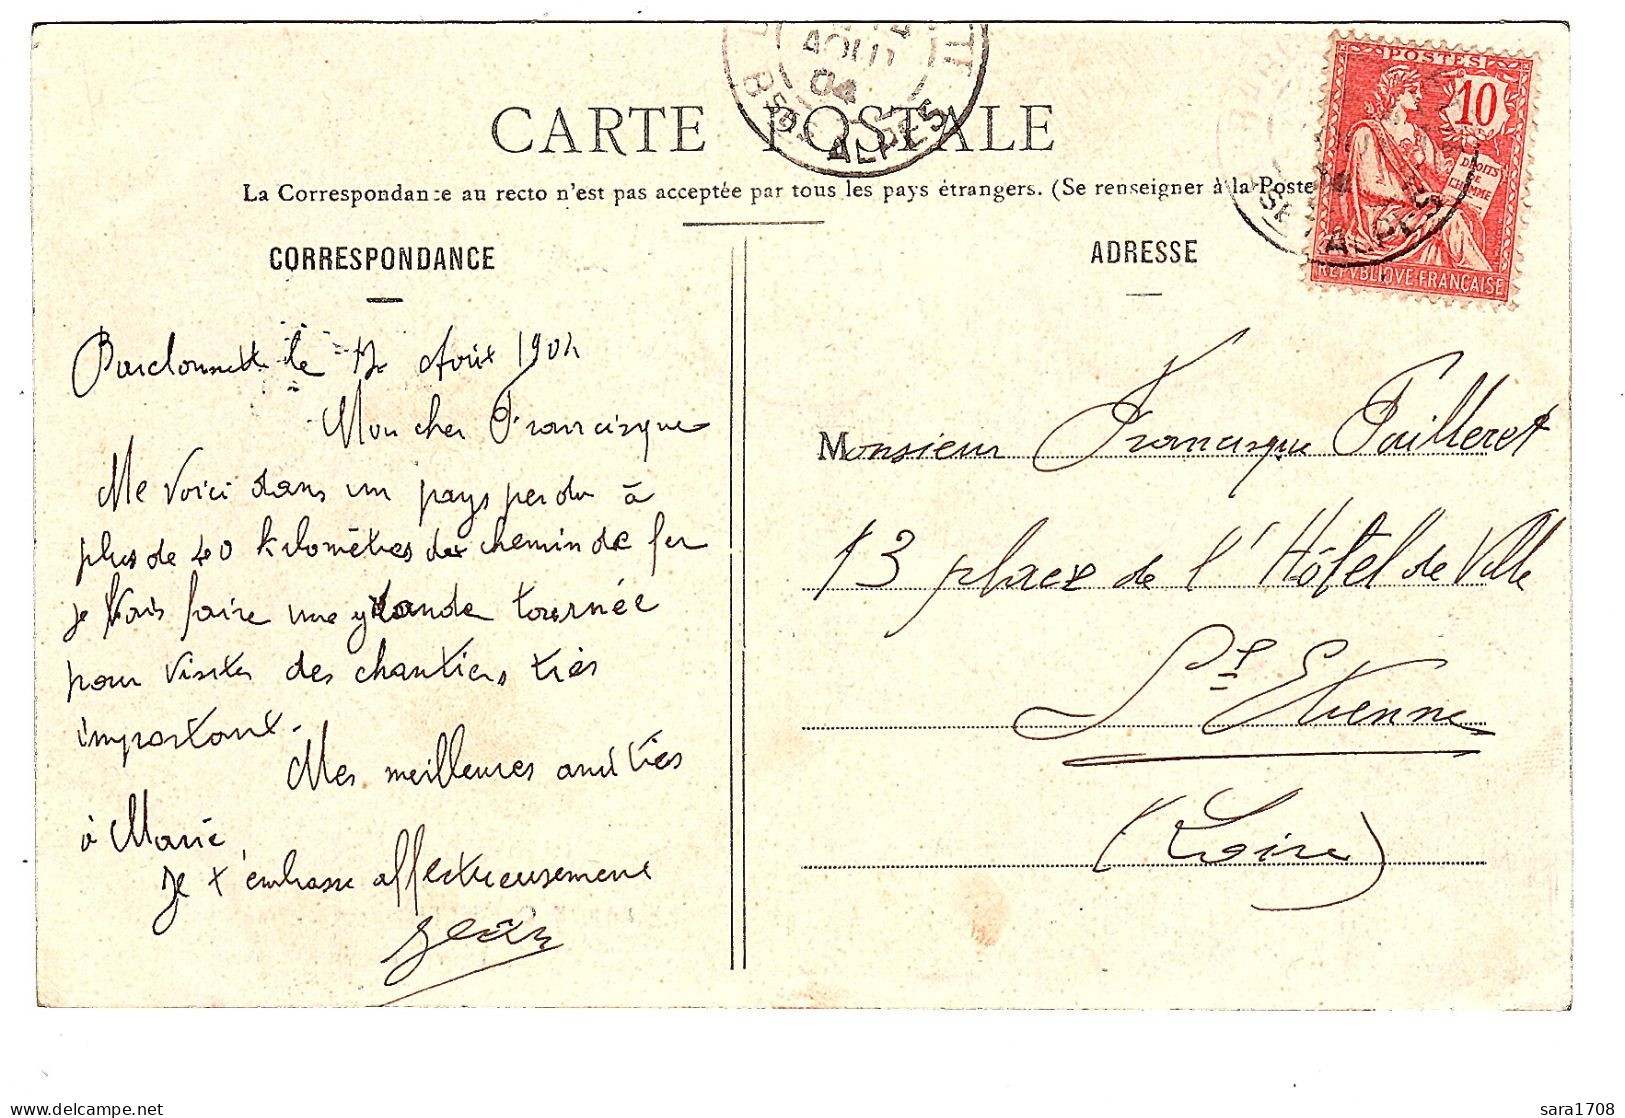 CARTE POSTALE
La Correspondance au recto n'est pas acceptée par tous les pays étrangers. (Se renseigner à la Poste
CORRESPONDANCE
ADRESSE
AOUT
04
BSES ALPES
POSTES
10
DROITS
DE
L'HOMME
REPVBLIQVE FRANÇAISE
ALPES
le Août 1904
Mon cher Francisque
Me voici dans un pays perdu à
plus de 40 kilomètres de chemin de fer
je vais faire une grande tournée
pour visiter des chantiers très
important.
Mes meilleures amitiés
à Marie
Je t'embrasse affectueusement
Jean
Monsieur Francisque Pailleret
13 place de l'Hôtel de Ville
St Etienne
(Loire)
sara1708